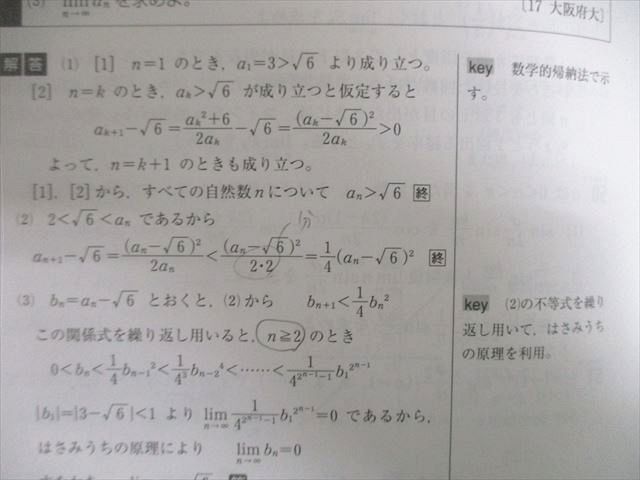 (3) lim_{n→∞} a_n を求めよ。
〔17 大阪府大〕
解答 (1) [1] n=1 のとき, a_1=3>√6 より成り立つ。
[2] n=k のとき, a_k>√6 が成り立つと仮定すると
a_{k+1}-√6=(a_k^2+6)/(2a_k)-√6=(a_k-√6)^2/(2a_k)>0
よって, n=k+1 のときも成り立つ。
[1], [2]から, すべての自然数 n について a_n>√6 終
(2) 2<√6<a_n であるから
a_{n+1}-√6=(a_n-√6)^2/(2a_n)<(a_n-√6)^2/(2・2)=1/4(a_n-√6)^2 終
(3) b_n=a_n-√6 とおくと, (2)から b_{n+1}<1/4 b_n^2
この関係式を繰り返し用いると, n≧2 のとき
0<b_n<1/4 b_{n-1}^2<1/4^3 b_{n-2}^4<……<1/4^{2^{n-1}-1} b_1^{2^{n-1}}
|b_1|=|3-√6|<1 より lim_{n→∞} 1/4^{2^{n-1}-1} b_1^{2^{n-1}}=0 であるから,
はさみうちの原理により lim_{n→∞} b_n=0
key 数学的帰納法で示
す。
key (2)の不等式を繰り
返し用いて, はさみうち
の原理を利用。